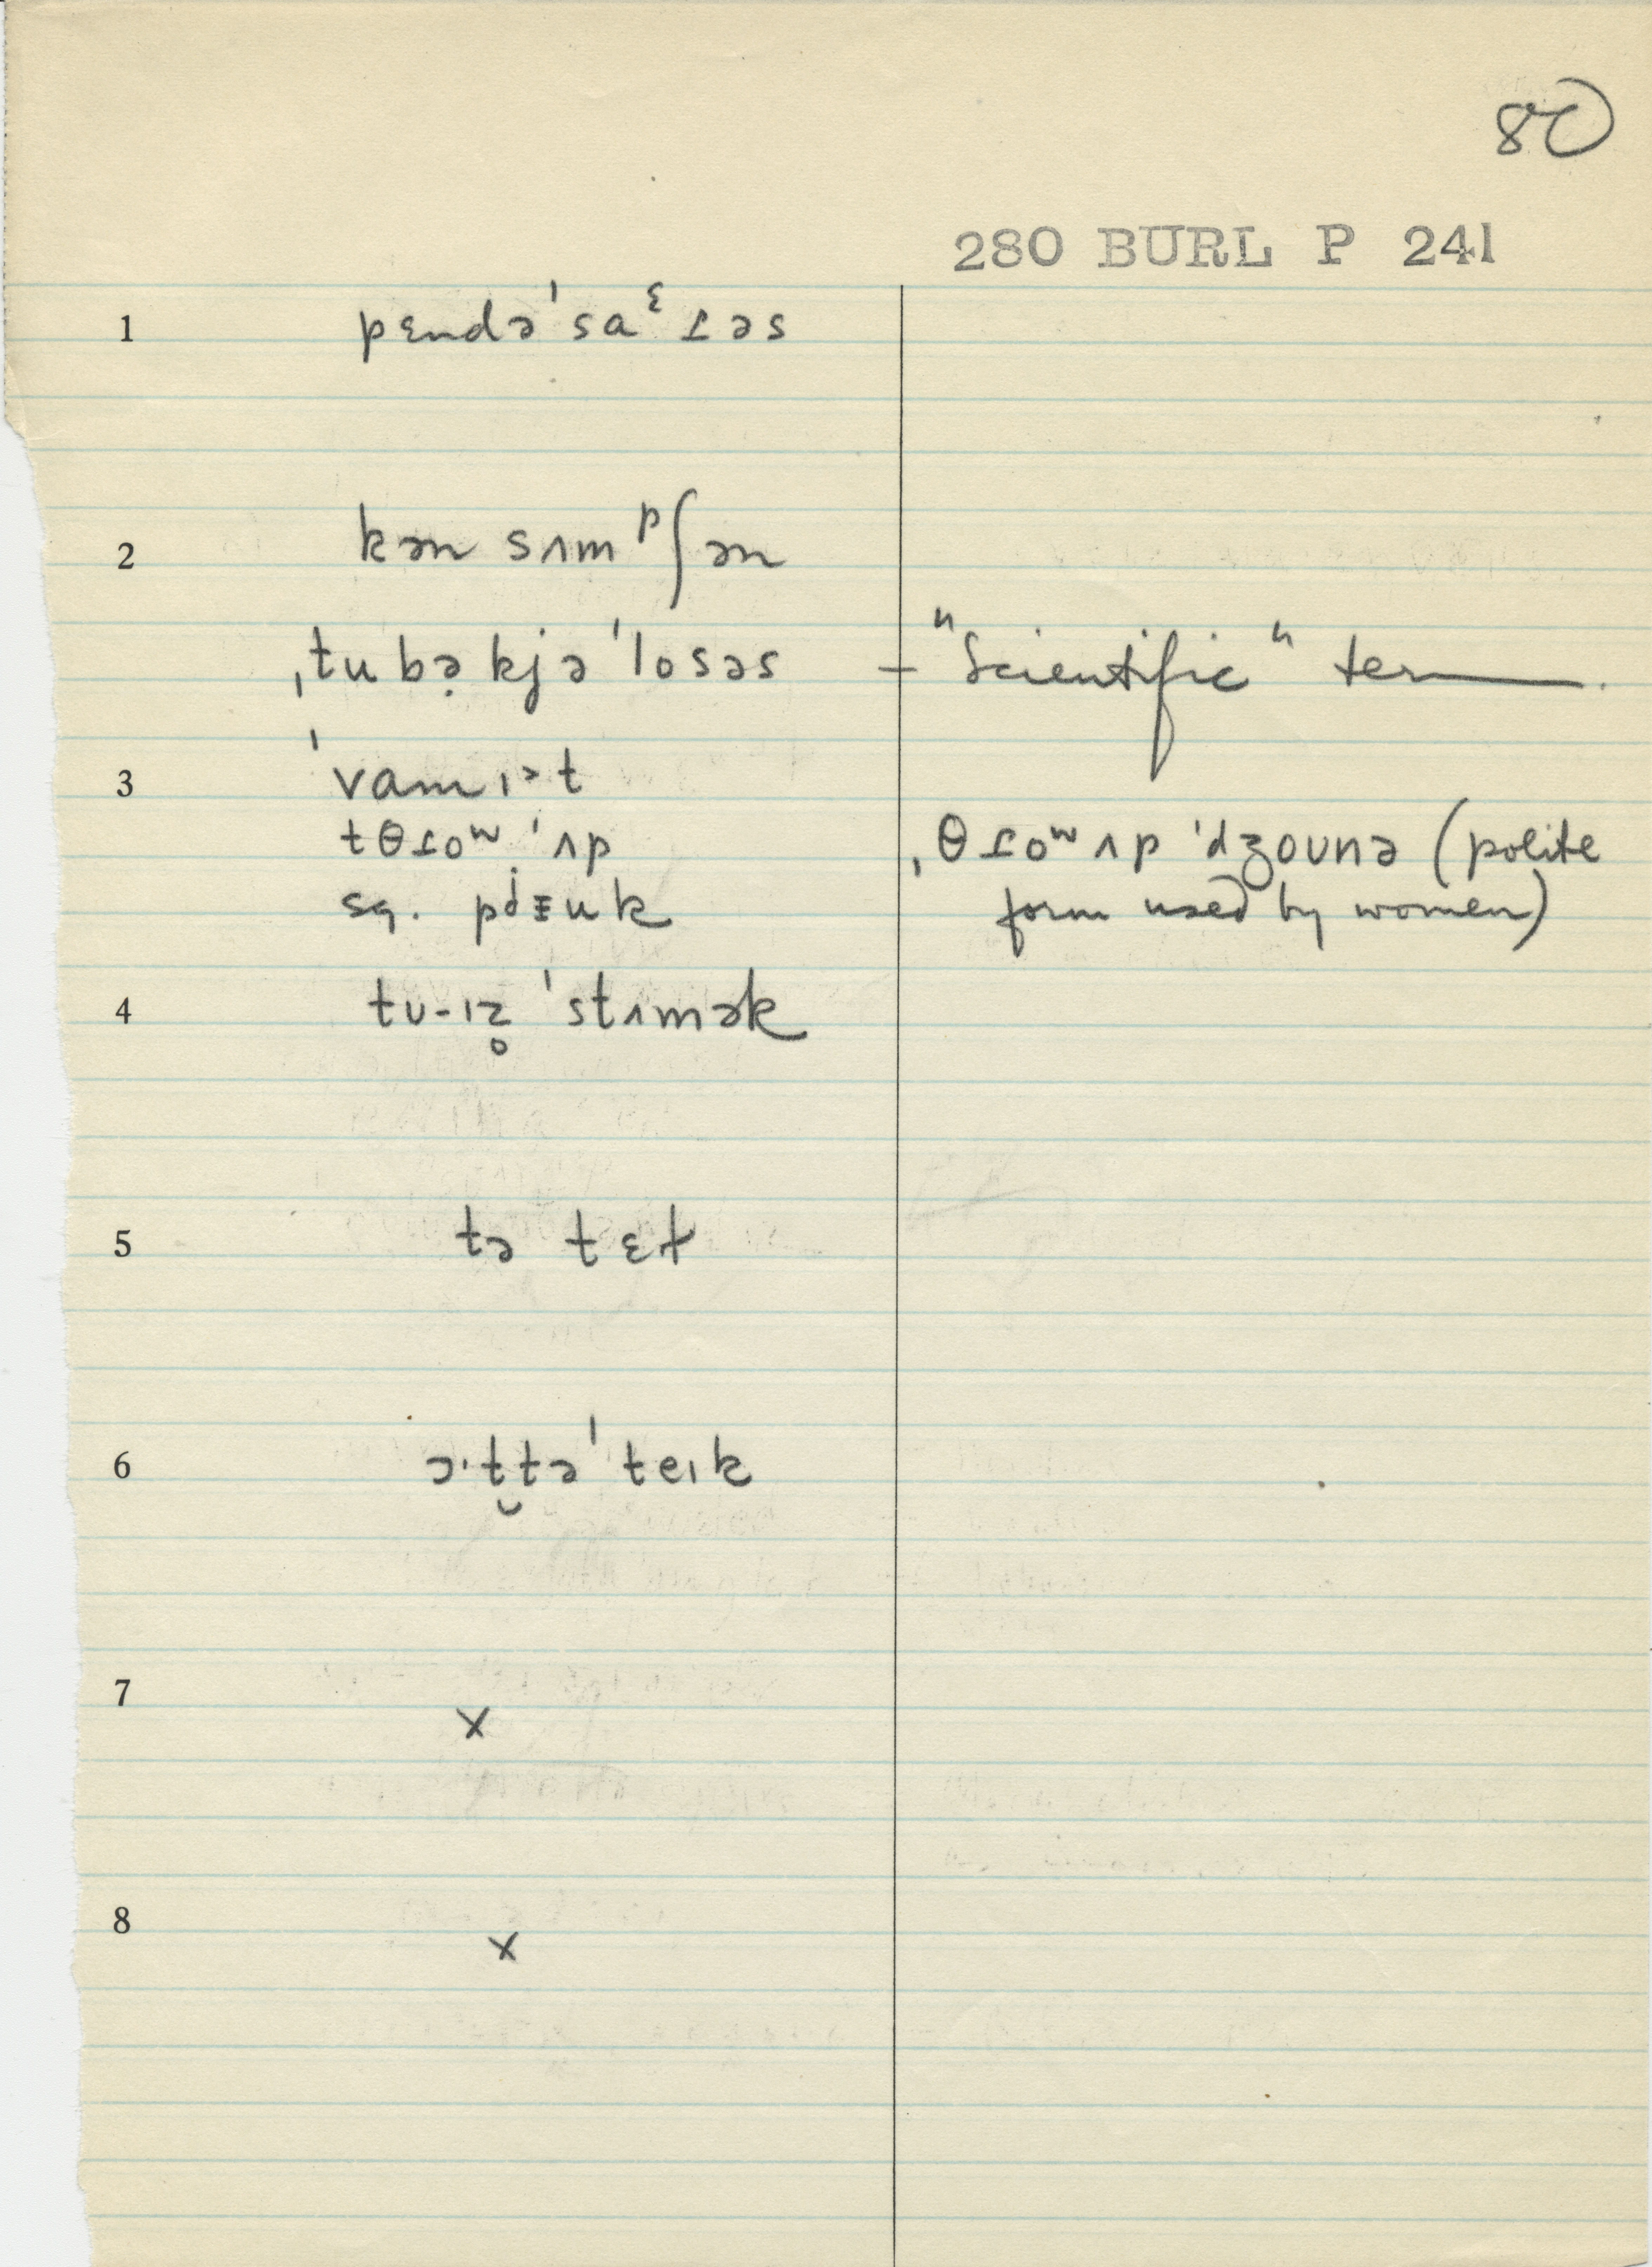 80
280 BURL P 241
1 pɛndə'saᵋɪəs
2 kən sʌmᵖʃən
ˌtubə̣kjə'losəs – "Scientific" term.
3 'vamɪ>t
tθɹoʷ 'ʌp ˌθɹoʷʌp 'dʒoʊnə (polite
sq. form used by women)
4 tʊ-ɪz̥ 'stʌmək
5 tə tɛt
6 ɔ·t̬tə'teɪk
7 x
8 x